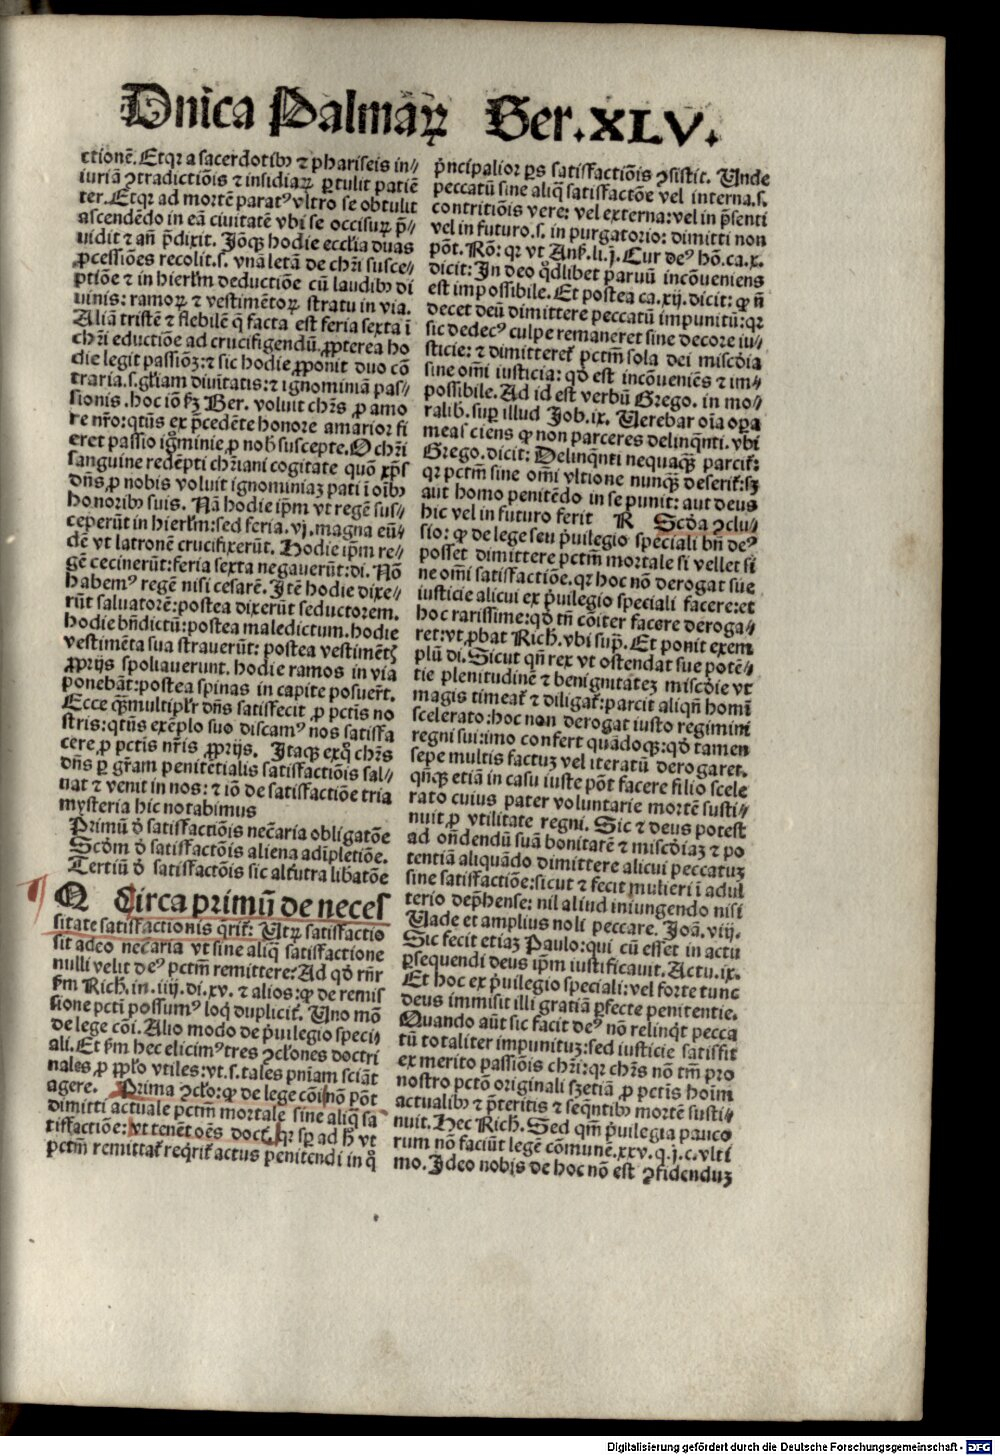 Dnica Palmaꝝ Ser.XLV.
ctionē. Etqꝛ a sacerdotibꝰ ⁊ phariseis in⸗
iuriā ꝯtradictiōis ⁊ insidiaꝝ ꝑtulit patiē
ter. Etqꝛ ad mortē paratꝰ vltro se obtulit
ascendēdo in eā ciuitatē vbi se occisuꝝ p̄⸗
uidit ⁊ añ p̄dixit. Jōqꝫ hodie eccl̃ia duas
ꝓcessiões recolit.s. vnā letā de chꝛ̃i susce⸗
ptiõe ⁊ in hierl̃m deductiõe cū laudibꝰ di
uinis: ramoꝝ ⁊ vestimētoꝝ stratu in via.
Aliā tristē ⁊ flebilē q̄ facta est feria sexta ī
chꝛ̃i eductiõe ad crucifigendū. ꝓpterea ho
die legit passioꝫ: ⁊ sic hodie ꝓponit duo cõ
traria.s. gl̃iam diuītatis: ⁊ ignominiā pas⸗
sionis. hoc iõ ẜm Ber. voluit chꝛ̃s ꝓ amo
re nr̃o: qtūs ex p̄cedēte honore amarior fi
eret passio ignominie ꝓ nob̃ suscepte. O chꝛ̃i
sanguine redēpti chꝛ̃iani cogitate quō xp̃s
dñs ꝓ nobis voluit ignominiaꝫ pati ī oĩbꝰ
honoribꝰ suis. Nā hodie ip̃m vt regē sus⸗
ceperūt in hierl̃m: sed feria.vj. magna eū⸗
dē vt latronē crucifixerūt. Hodie ip̃m re⸗
gē cecinerūt: feria sexta negauerūt: di. Nõ
habemꝰ regē nisi cesarē. Jtē hodie dixe⸗
rūt saluatorē: postea dixerūt seductorem.
hodie bñdictū: postea maledictum. hodie
vestimēta sua strauerūt: postea vestimētꝭ
ꝓprijs spoliauerunt. hodie ramos in via
ponebāt: postea spinas in capite posuer̃t.
Ecce qꝫmultipl̃r dñs satisfecit ꝓ pctĩs no
stris: qtūs exēplo suo discamꝰ nos satisfa
cere ꝓ pctĩs nr̃is ꝓprijs. Jtaqꝫ exq̊ chꝛ̃s
dñs ꝑ gr̃am penitētialis satisfactiõis sal⸗
uat ⁊ venit in nos: ⁊ iõ de satisfactiõe tria
mysteria hic notabimus
Primū ð satisfactiõis nec̃aria obligatõe
Scðm ð satisfactõis aliena adīpletiõe.
Tertiū ð satisfactõis sic al̃tutra libatõe
Q Circa primū de neces
sitate satisfactionis q̄rit̃: Utꝝ satisfactio
sit adeo nec̃aria vt sine aliq̃ satisfactione
nulli velit deꝰ pctm̃ remittere? Ad qð rñr
ẜm Rich̃. in.iiij.di.xv. ⁊ alios: ꝙ de remis
sione pctĩ possumꝰ loq̇ duplicit̃. Uno mõ
de lege cõi. Alio modo de p̃uilegio speci⸗
ali. Et ẜm hec elicimꝰ tres ꝯcl̃ones doctri
nales ꝓ ppl̃o vtiles: vt.s. tales pñiam sciāt
agere. Prima ꝯcl̃o: ꝙ de lege cõi nõ põt
dimitti actuale pctm̃ mortale sine aliq̃ sa
tisfactiõe: vt tenēt oẽs doct̃. qꝛ sp̱ ad h̃ vt
pctm̃ remittat̃ req̇rit̃ actus penitendi in q̊
p̃ncipalior ꝑs satisfactiõis ꝯsistit. Unde
peccatū sine aliq̃ satisfactõe vel interna.s.
contritiõis vere: vel externa: vel in p̄senti
vel in futuro.s. in purgatorio: dimitti non
põt. Rõ: qꝛ vt Ans̃. li.j. Cur deꝰ hõ.ca.x.
dicit: Jn deo q̊dlibet paruū incõueniens
est impossibile. Et postea ca.xij. dicit: ꝙ ñ
decet deū dimittere peccatū impunitū: qꝛ
sic dedecꝰ culpe remaneret sine decore iu⸗
sticie: ⁊ dimitteret̃ pctm̃ sola dei miscðia
sine om̃i iusticia: qð est incõueniēs ⁊ im⸗
possibile. Ad id est verbū Grego. in mo⸗
ralib. suꝑ illud Job.ix. Uerebar oĩa oꝑa
mea sciens ꝙ non parceres delinquēti. vbi
Grego. dicit: Delinquēti nequaqꝫ parcit̃:
qꝛ pctm̃ sine om̃i vltione nunqꝫ deserit̃: sꝫ
aut homo penitēdo in se punit: aut deus
hic vel in futuro ferit R Scða ꝯclu⸗
sio: ꝙ de lege seu p̃uilegio speciali bñ deꝰ
posset dimittere pctm̃ mortale si vellet si
ne om̃i satisfactiõe. qꝛ hoc nõ derogat sue
iusticie alicui ex p̃uilegio speciali facere: et
hoc rarissime: qð tñ cõiter facere deroga⸗
ret: vt ꝓbat Rich̃. vbi sup̃. Et ponit exem
plū di. Sicut qñ rex vt ostendat sue potē⸗
tie plenitudinē ⁊ benignitateꝫ miscðie vt
magis timeat̃ ⁊ diligat̃: parcit aliqñ homĩ
scelerato: hoc non derogat iusto regimini
regni sui: imo confert quādoqꝫ: qð tamen
sepe multis factuꝫ vel iteratū derogaret.
qñqꝫ etiā in casu iuste põt facere filio scele
rato cuius pater voluntarie mortē susti⸗
nuit ꝓ vtilitate regni. Sic ⁊ deus potest
ad oñdendū suā bonitatē ⁊ miscðiaꝫ ⁊ po
tentiā aliquādo dimittere alicui peccatuꝫ
sine satisfactiõe: sicut ⁊ fecit mulieri ī adul
terio dep̃hense: nil aliud iniungendo nisi
Uade et amplius noli peccare. Joā.viij.
Sic fecit etiaꝫ Paulo: qui cū esset in actu
ꝑsequendi deus ip̃m iustificauit. Actu.ix.
Et hoc ex p̃uilegio speciali: vel forte tunc
deus immisit illi gratiā ꝑfecte penitentie.
Quando aūt sic facit deꝰ nõ relinq̇t pecca
tū totaliter impunituꝫ: sed iusticie satisfit
ex merito passiõis chꝛ̃i: qꝛ chꝛ̃s nõ tm̃ pro
nostro pctõ originali sꝫ etiā ꝓ pctĩs hoĩm
actualibꝰ ⁊ p̄teritis ⁊ seq̃ntibꝰ mortē susti⸗
nuit. Hec Rich̃. Sed qm̃ p̃uilegia pauco
rum nõ faciūt legē cõmunē.xxv.q.j.c.vlti
mo. Jdeo nobis de hoc nõ est ꝯfidenduꝫ
Digitalisierung gefördert durch die Deutsche Forschungsgemeinschaft - DFG